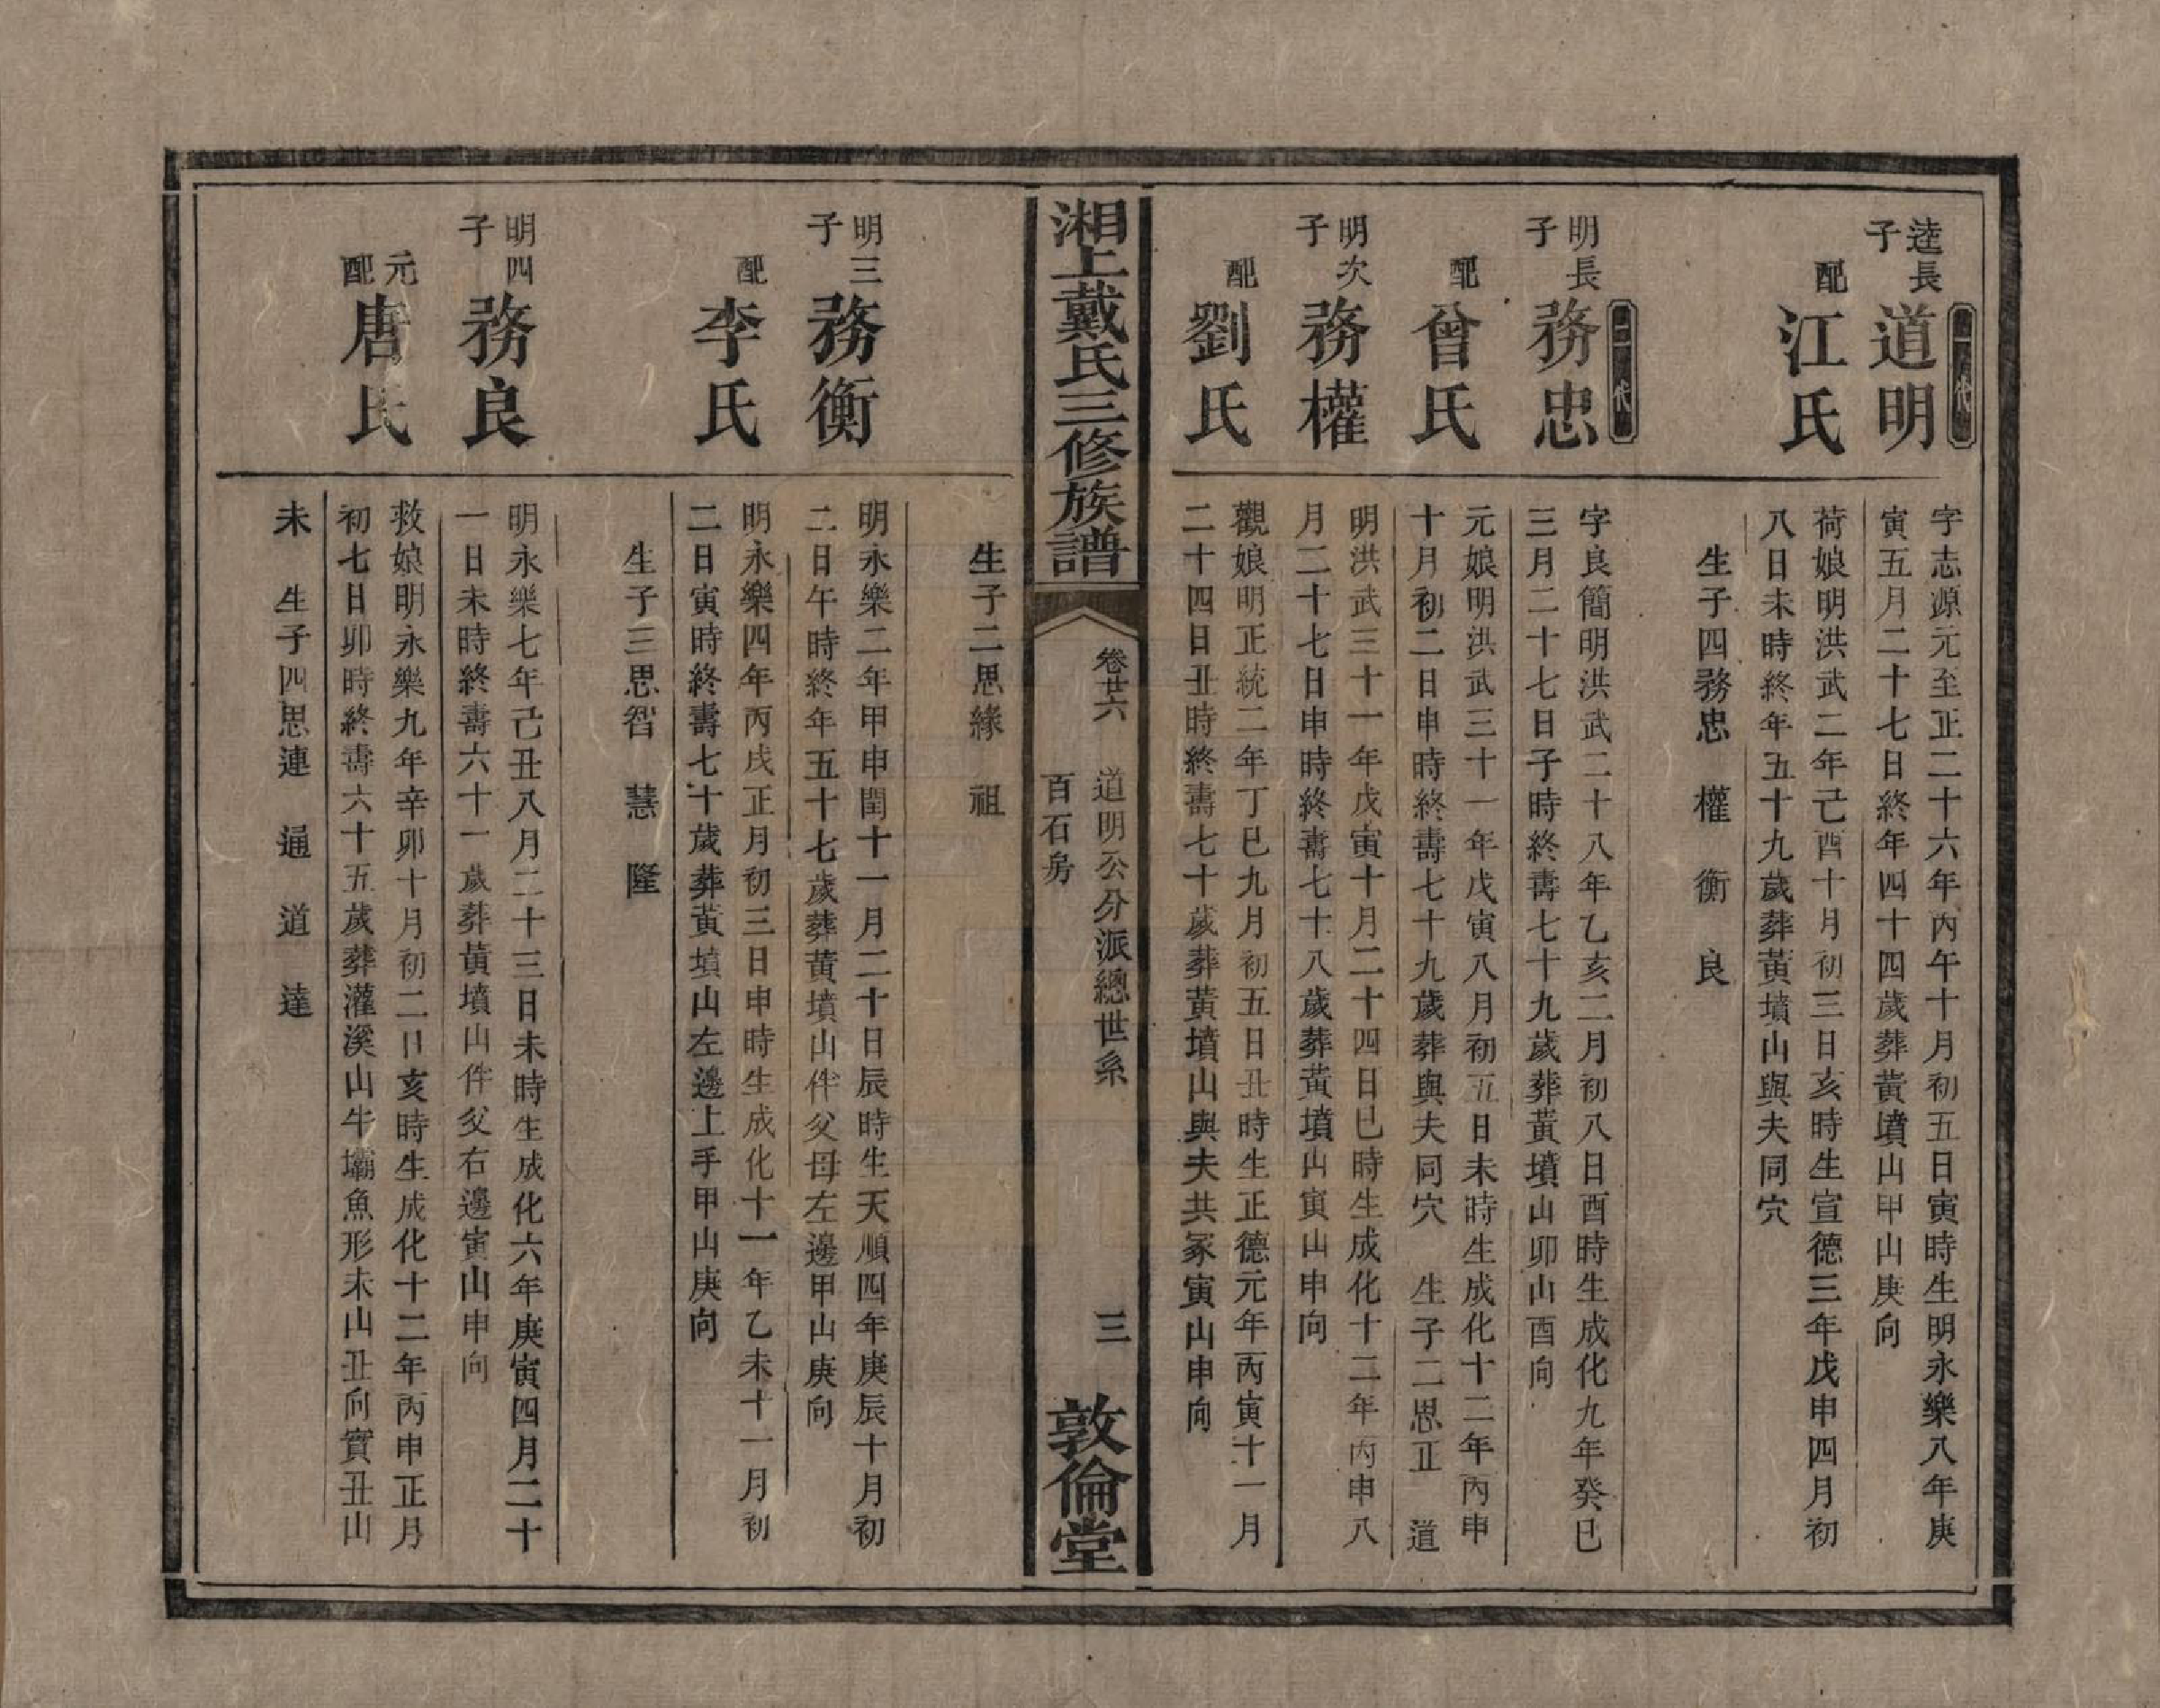 一代
逵長子
道明
字志源元至正二十六年丙午十月初五日寅時生明永樂八年庚
寅五月二十七日終年四十四歲葬黃墳山甲山庚向
配
江氏
荷娘明洪武二年己酉十月初三日亥時生宣德三年戊申四月初
八日未時終年五十九歲葬黃墳山與夫同穴
生子四務忠 權 衡 良
二代
明長子
務忠
字良簡明洪武二十八年乙亥二月初八日酉時生成化九年癸巳
三月二十七日子時終壽七十九歲葬黃墳山卯山酉向
配
曾氏
元娘明洪武三十一年戊寅八月初五日未時生成化十二年丙申
十月初二日申時終壽七十九歲葬與夫同穴 生子二思正 道
明次子
務權
明洪武三十一年戊寅十月二十四日巳時生成化十二年丙申八
月二十七日申時終壽七十八歲葬黃墳山寅山申向
配
劉氏
觀娘明正統二年丁巳九月初五日丑時生正德元年丙寅十一月
二十四日丑時終壽七十歲葬黃墳山與夫共冢寅山申向
湘上戴氏三修族譜
卷廿六 道明公分派總世系
百石房
三
敦倫堂
生子二思緣 祖
明三子
務衡
明永樂二年甲申閏十一月二十日辰時生天順四年庚辰十月初
二日午時終年五十七歲葬黃墳山伴父母左邊甲山庚向
配
李氏
明永樂四年丙戌正月初三日申時生成化十一年乙未十一月初
二日寅時終壽七十歲葬黃墳山左邊上手甲山庚向
生子三思智 慧 隆
明四子
務良
明永樂七年己丑八月二十三日未時生成化六年庚寅四月二十
一日未時終壽六十一歲葬黃墳山伴父右邊寅山申向
元配
唐氏
救娘明永樂九年辛卯十月初二日亥時生成化十二年丙申正月
初七日卯時終壽六十五歲葬灌溪山牛壩魚形未山丑向實丑山
未 生子四思連 通 道 達